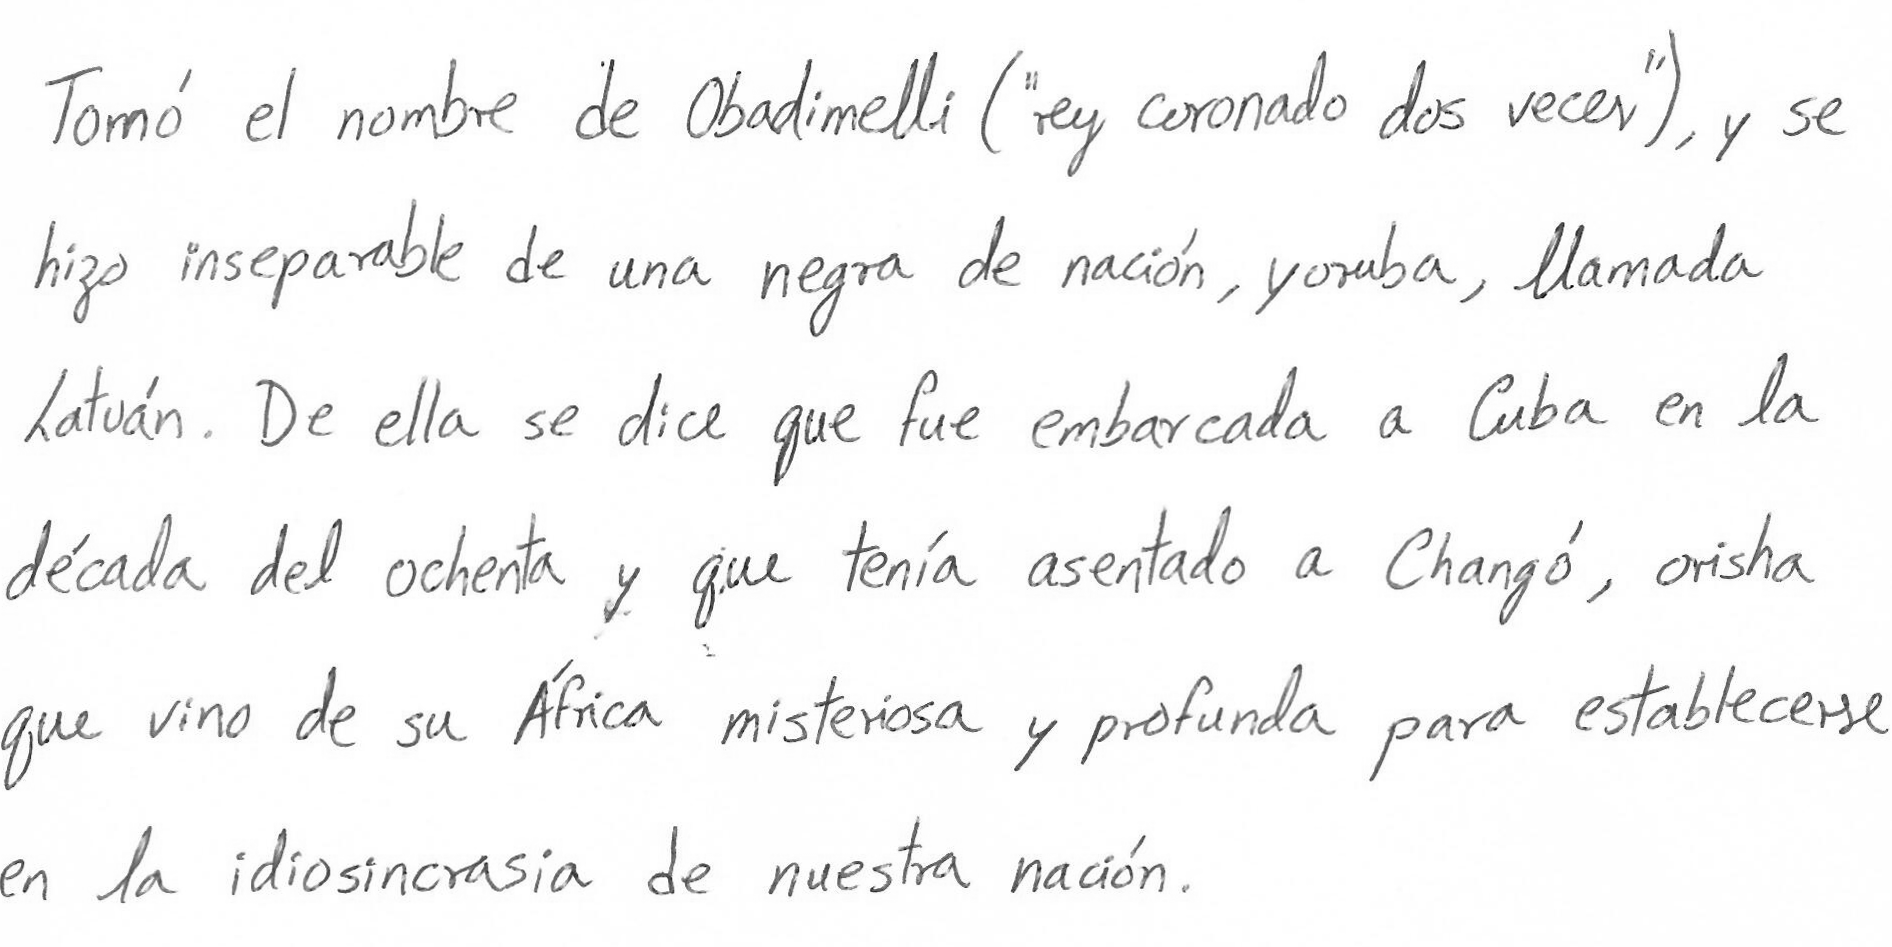 Tomó el nombre de Obadimelli ("rey coronado dos veces"), y se
hizo inseparable de una negra de nación, yoruba, llamada
Latuán. De ella se dice que fue embarcada a Cuba en la
década del ochenta y que tenía asentado a Changó, orisha
que vino de su África misteriosa y profunda para establecerse
en la idiosincrasia de nuestra nación.